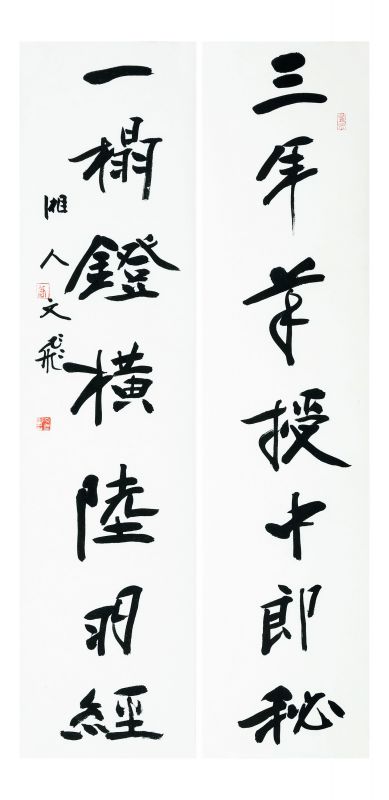 三年筆授中郎秘
一榻鐙橫陸羽經
湘人文飛